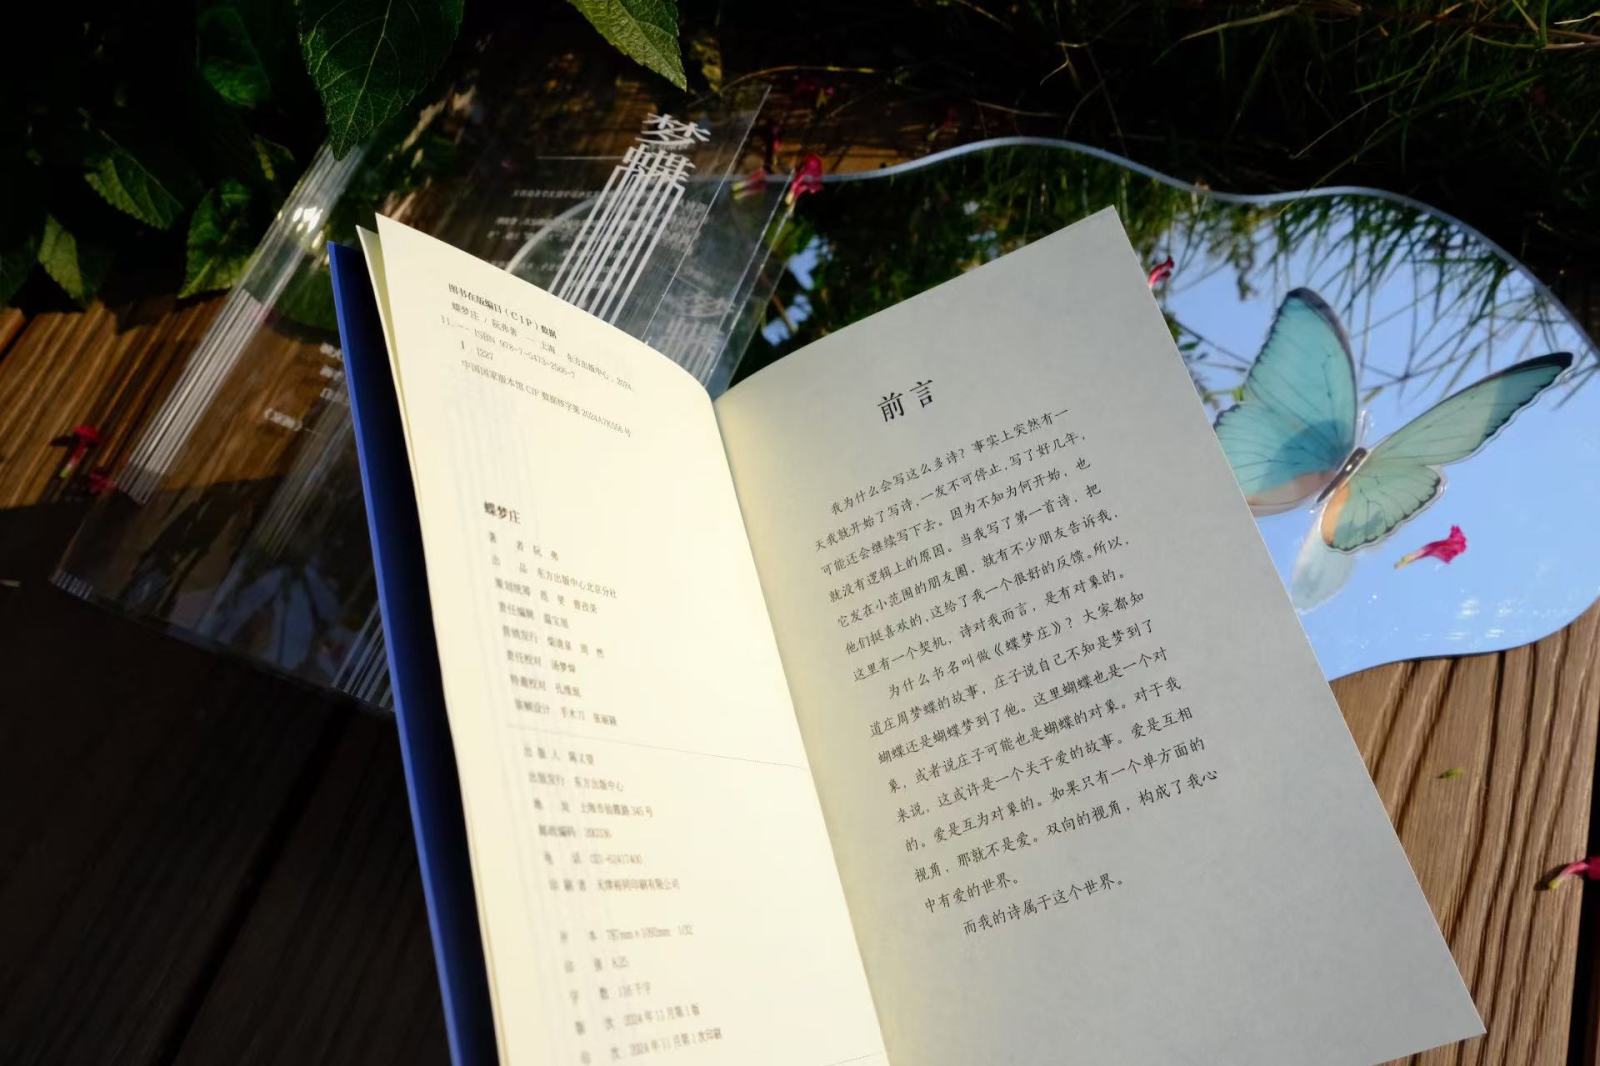 梦
蝶
图书在版编目（CIP）数据
蝶梦庄 / 阮弗著. -- 上海 : 东方出版中心, 2024.
11. -- ISBN 978-7-5473-2566-7
I227
中国国家版本馆CIP数据核字第2024A7K556号
蝶梦庄
著 者 阮 弗
出 品 东方出版中心北京分社
策划统筹
责任编辑
营销发行
责任校对 汤梦焯
特邀校对
装帧设计
出版人
出版发行 东方出版中心
地 址 上海市仙霞路345号
邮政编码 200336
电 话 021-62417400
印刷者
开 本 787mm×1092mm 1/32
印 张
字 数
版 次 2024年11月第1版
印 次 2024年11月第1次印刷
前言
我为什么会写这么多诗？事实上突然有一
天我就开始了写诗，一发不可停止，写了好几年，
可能还会继续写下去。因为不知为何开始，也
就没有逻辑上的原因。当我写了第一首诗，把
它发在小范围的朋友圈，就有不少朋友告诉我，
他们挺喜欢的，这给了我一个很好的反馈。所以，
这里有一个契机，诗对我而言，是有对象的。
为什么书名叫做《蝶梦庄》？大家都知
道庄周梦蝶的故事，庄子说自己不知是梦到了
蝴蝶还是蝴蝶梦到了他。这里蝴蝶也是一个对
象，或者说庄子可能也是蝴蝶的对象。对于我
来说，这或许是一个关于爱的故事。爱是互相
的。爱是互为对象的。如果只有一个单方面的
视角，那就不是爱。双向的视角，构成了我心
中有爱的世界。
而我的诗属于这个世界。